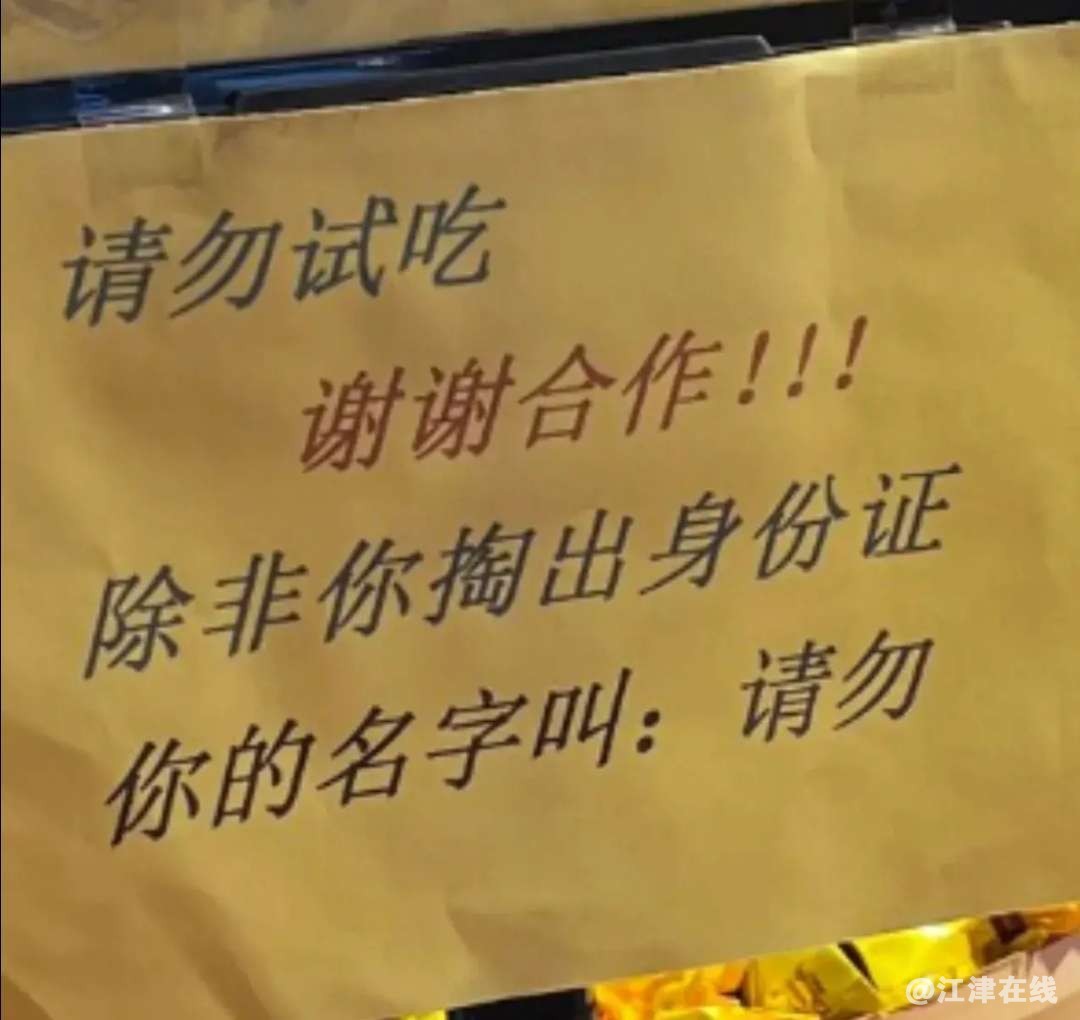 请勿试吃
谢谢合作!!!
除非你掏出身份证
你的名字叫：请勿
@江津在线